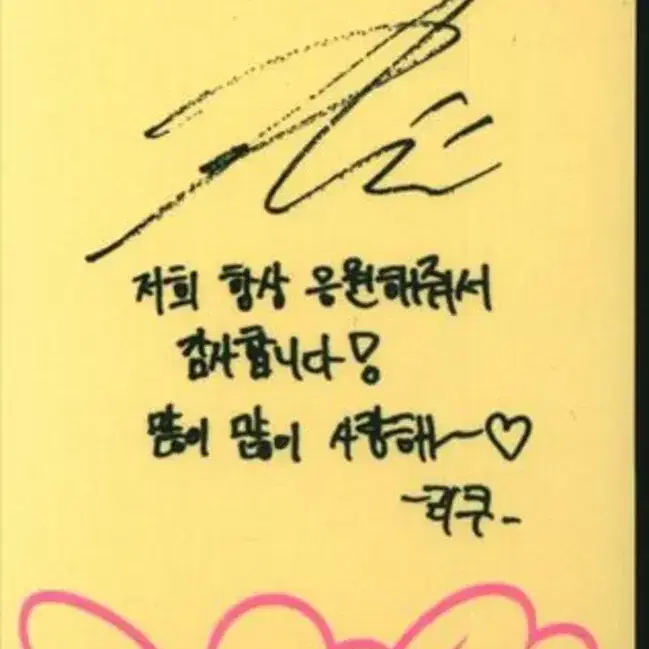 저희 항상 응원해줘서
감사합니다!
많이 많이 사랑해~♡
-리쿠-